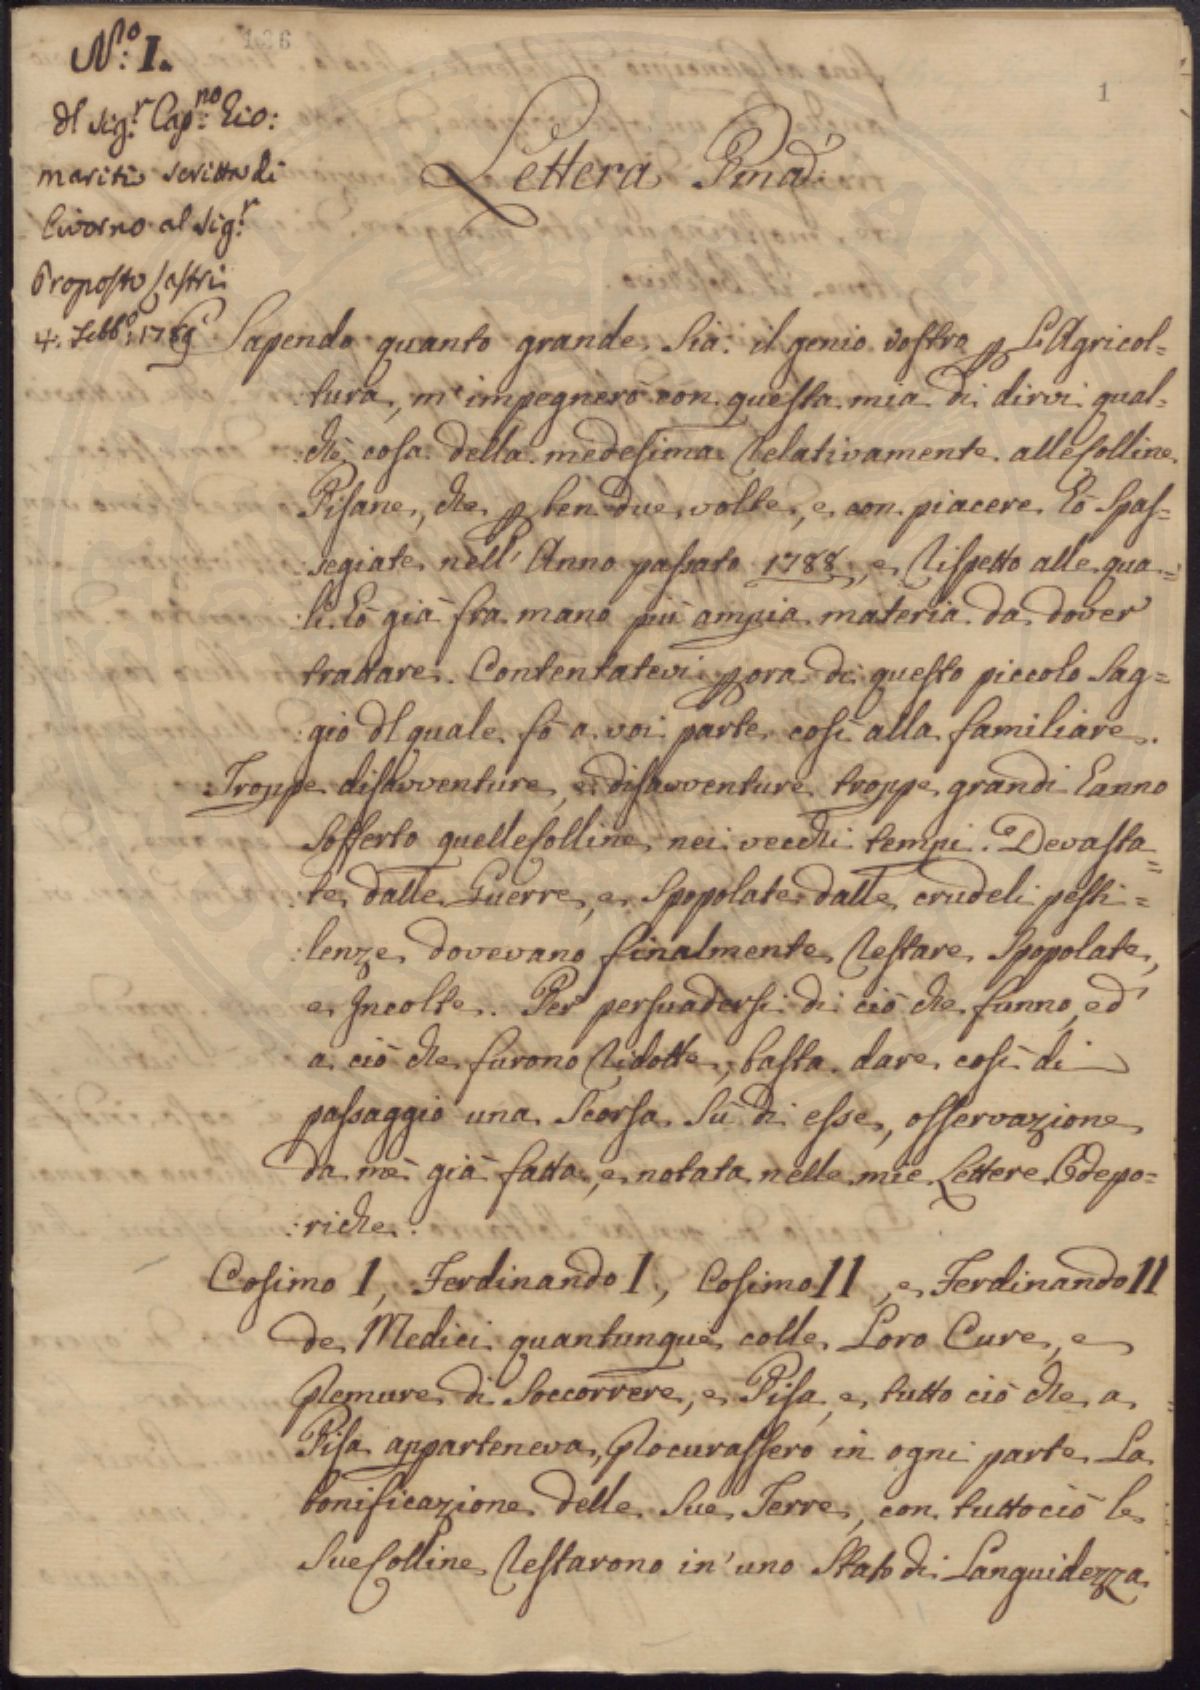 N.º I.
136
1
Dl Sig.r Cap.no Gio:
mariti scritta di
Livorno al Sig.r
Proposto Lastri
4. Febb.o 1789
Lettera Pma
Sapendo quanto grande sia il genio vostro p L'Agricol=
:tura, m'impegnerò con questa mia di dirvi qual=
:che cosa della medesima relativamente alle Colline
Pisane, che p ben due volte, e con piacere hò spas=
:segiate nell'Anno passato 1788, e rispetto alle qua=
:li hò già fra mano più ampia materia da dover
trattare. Contentatevi p ora di questo piccolo sag=
:gio dl quale fò a voi parte così alla familiare.
Troppe disavventure, e disavventure troppe grandi hanno
sofferto quelle Colline nei vecchi tempi. Devasta=
:te dalle Guerre, e spopolate dalle crudeli pesti=
:lenze dovevano finalmente restare spopolate,
e Incolte. Per persuadersi di ciò che funno, ed
a ciò che furono ridotte, basta dare così di
passaggio una scorsa sù di esse, osservazione
da mè già fatta, e notata nelle mie Lettere Odepo=
:riche.
Cosimo I, Ferdinando I, Cosimo II, e Ferdinando II
de Medici quantunque colle Loro Cure, e
Premure di soccorrere, e Pisa, e tutto ciò che a
Pisa apparteneva, Procurassero in ogni parte La
bonificazione delle sue Terre, con tuttociò le
sue Colline restarono in'uno stato di Languidezza